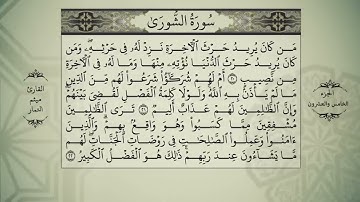 سُورَةُ الشُّورَىٰ
مَن كَانَ يُرِيدُ حَرْثَ الْآخِرَةِ نَزِدْ لَهُ فِي حَرْثِهِ وَمَن
كَانَ يُرِيدُ حَرْثَ الدُّنْيَا نُؤْتِهِ مِنْهَا وَمَا لَهُ فِي الْآخِرَةِ
مِن نَّصِيبٍ ٢٠ أَمْ لَهُمْ شُرَكَاءُ شَرَعُوا لَهُم مِّنَ الدِّينِ
مَا لَمْ يَأْذَن بِهِ اللَّهُ وَلَوْلَا كَلِمَةُ الْفَصْلِ لَقُضِيَ بَيْنَهُمْ
وَإِنَّ الظَّالِمِينَ لَهُمْ عَذَابٌ أَلِيمٌ ٢١ تَرَى الظَّالِمِينَ
مُشْفِقِينَ مِمَّا كَسَبُوا وَهُوَ وَاقِعٌ بِهِمْ وَالَّذِينَ
آمَنُوا وَعَمِلُوا الصَّالِحَاتِ فِي رَوْضَاتِ الْجَنَّاتِ لَهُم
مَّا يَشَاءُونَ عِندَ رَبِّهِمْ ذَٰلِكَ هُوَ الْفَضْلُ الْكَبِيرُ ٢٢
الجزء
الخامس والعشرون
القارئ
ميثم
التمار